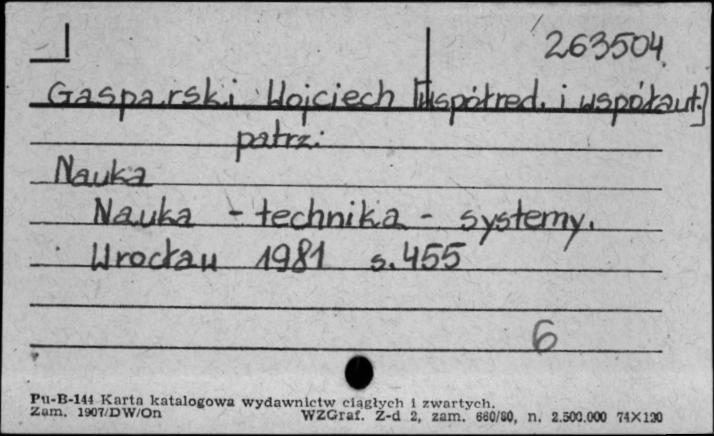 263504
Gasparski Wojciech [współred. i współaut.]
patrz:
Nauka
Nauka - technika - systemy.
Wrocław 1981 s. 455
6
Pu-B-144 Karta katalogowa wydawnictw ciągłych i zwartych.
Zam. 1907/DW/On WZGraf. Z-d 2, zam. 660/80, n. 2.500.000 74X120